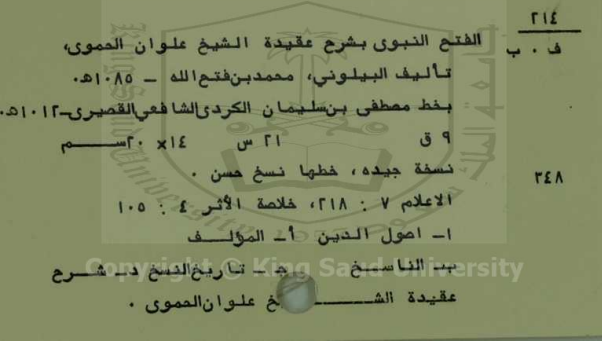 ٢١٤
ف ٠ ب
الفتح النبوى بشرح عقيدة الشيخ علوان الحموى،
تأليف البيلوني، محمدبن‌فتح‌الله - ١٠٨٥هـ٠
بخط مصطفى بن‌سليمان الكردى‌الشافعي‌القصيرى-١٠١٢هـ٠
٩ ق ٢١ س ١٤×٢٠ســـم
٣٤٨
نسخة جيده، خطها نسخ حسن ٠
الاعلام ٧ : ٢١٨، خلاصة الأثر ٤ : ١٠٥
١- اصول الدين أ- المؤلــف
ب- الناســخ جـ - تاريخ‌النسخ د- شــرح
عقيدة الشــــــيخ علوان‌الحموى ٠
Copyright © King Saud University